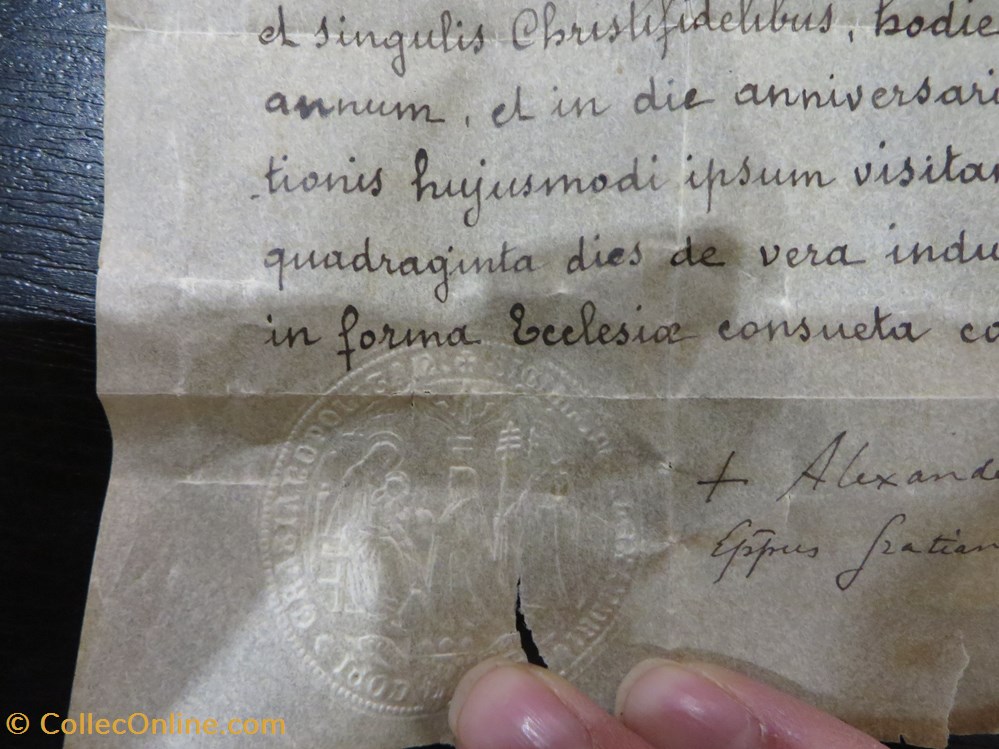 et singulis Christifidelibus, hodie
annum, et in die anniversari
tionis hujusmodi ipsum visitan
quadraginta dies de vera indu
in forma Ecclesiæ consueta co
+ Alexand
Eppus Gratian
© CollecOnline.com